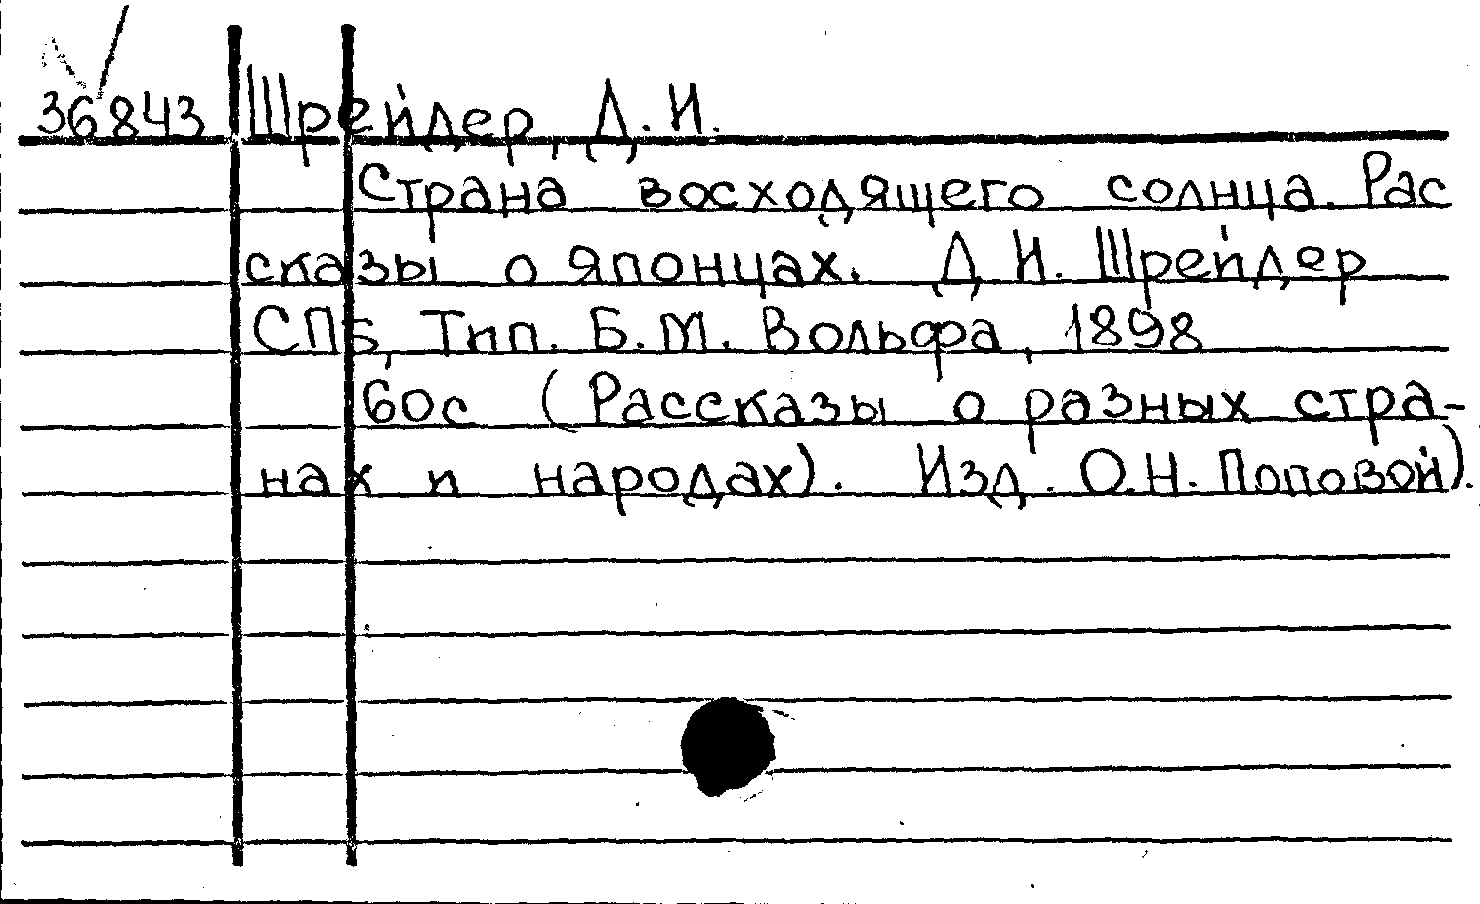 36843 Шрейдер, Д. И.
Страна восходящего солнца. Рас
сказы о японцах. Д И. Шрейдер
СПБ, Тип. Б. М. Вольфа, 1898
60с (Рассказы о разных стра-
нах и народах). Изд. О.Н. Поповой).